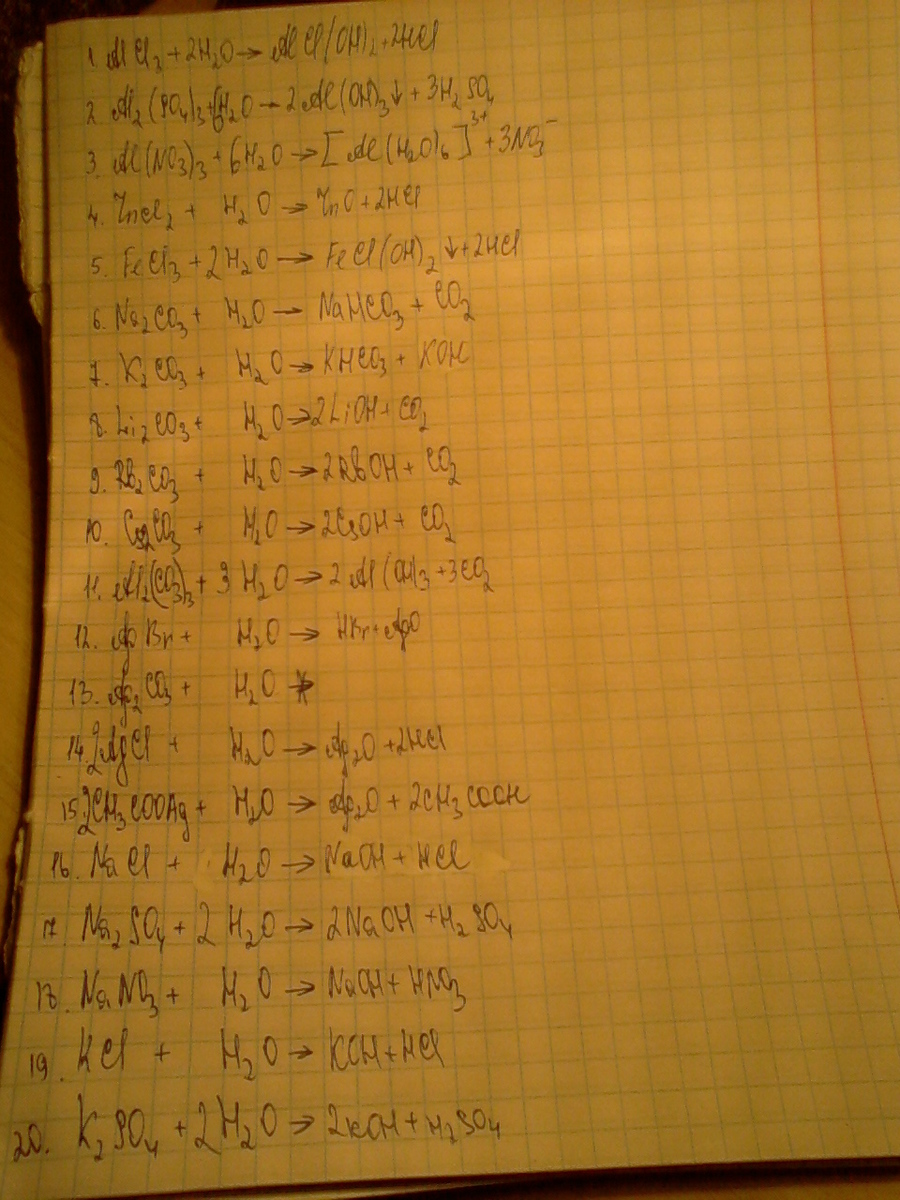 1. AlCl₃ + 2H₂O → AlCl(OH)₂ + 2HCl
2. Al₂(SO₄)₃ + 6H₂O → 2Al(OH)₃↓ + 3H₂SO₄
3. Al(NO₃)₃ + 6H₂O → [Al(H₂O)₆]³⁺ + 3NO₃⁻
4. ZnCl₂ + H₂O → ZnO + 2HCl
5. FeCl₃ + 2H₂O → FeCl(OH)₂↓ + 2HCl
6. Na₂CO₃ + H₂O → NaHCO₃ + CO₂
7. K₂CO₃ + H₂O → KHCO₃ + KOH
8. Li₂CO₃ + H₂O → 2LiOH + CO₂
9. Rb₂CO₃ + H₂O → 2RbOH + CO₂
10. Cs₂CO₃ + H₂O → 2CsOH + CO₂
11. Al₂(CO₃)₃ + 3H₂O → 2Al(OH)₃ + 3CO₂
12. AgBr + H₂O → HBr + AgO
13. Ag₂CO₃ + H₂O ↛
14. 2AgCl + H₂O → Ag₂O + 2HCl
15. 2CH₃COOAg + H₂O → Ag₂O + 2CH₃COOH
16. NaCl + H₂O → NaOH + HCl
17. Na₂SO₄ + 2H₂O → 2NaOH + H₂SO₄
18. NaNO₃ + H₂O → NaOH + HNO₃
19. KCl + H₂O → KOH + HCl
20. K₂SO₄ + 2H₂O → 2KOH + H₂SO₄